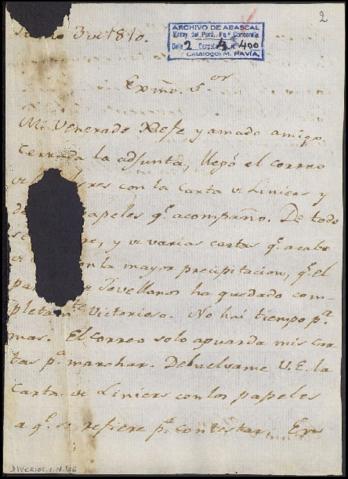 2
ARCHIVO DE ABASCAL
Virrey del Perú, Pte Concordia
2 4 400
CATÁLOGO M. RAVIA.
3 de 1810.
Exmo. Sor
Mi Venerado Xefe y amado amigo
Cerrada la adjunta, llegó el correo
con la Carta de Liniers y
papeles qe acompaño. De todo
y de varias cartas qe acabo
la mayor precipitacion, qe el
Jovellanos ha quedado com
pleta Victorioso. No hai tiempo pa
mas. El Correo solo aguarda mis car
tas pa marchar. Debuelvame V.E. la
Carta de Liniers con los papeles
a qe se refiere pa contestar. Exs
DIVERIOS. 1. N. 46